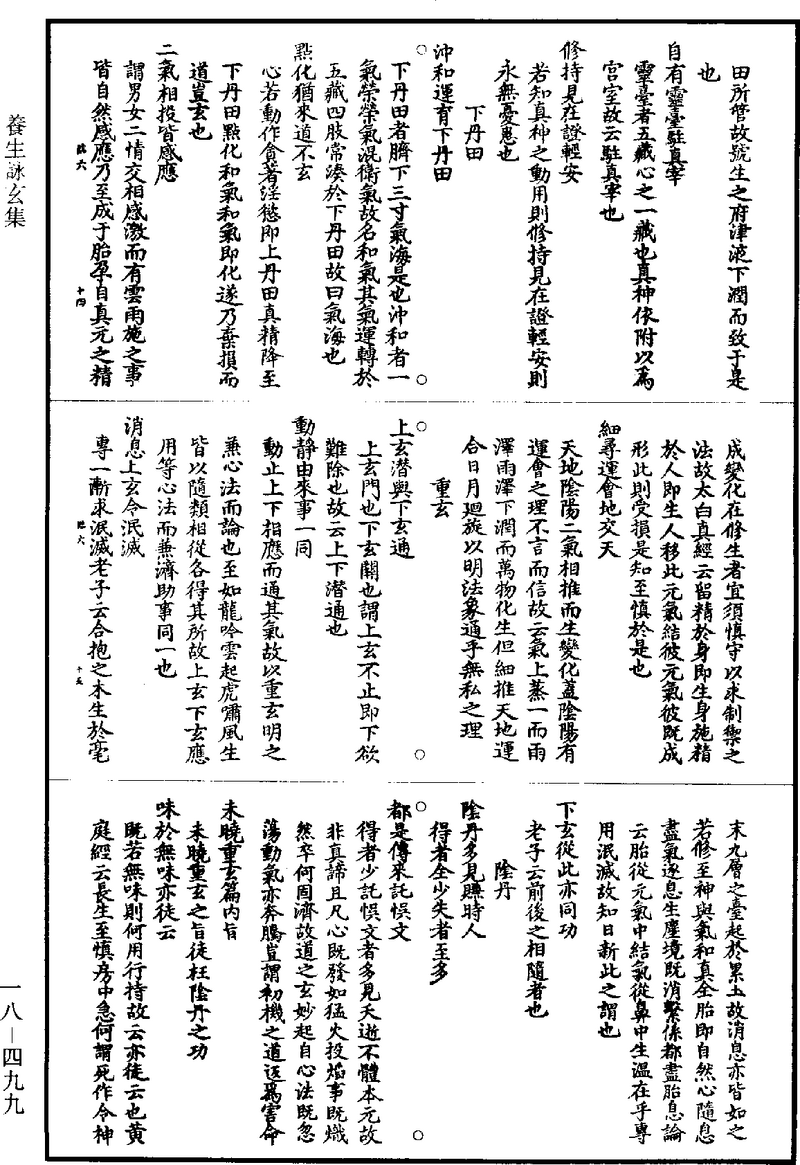 養生詠玄集
田所管故號生之府津液下潤而致于是
也
自有靈臺駐真宰
靈臺者五藏心之一藏也真神依附以為
宮室故云駐真宰也
修持見在證輕安
若知真神之動用則修持見在證輕安則
永無憂患也
下丹田
沖和運育下丹田
下丹田者臍下三寸氣海是也沖和者一
氣榮榮氣混衛氣故名和氣其氣運轉於
五藏四肢常湊於下丹田故曰氣海也
點化猶來道不玄
心若動作貪著淫慾即上丹田真精降至
下丹田點化和氣和氣即化遂乃棄損而
道豈玄也
二氣相投皆感應
謂男女二情交相感激而有雲雨施之事
皆自然感應乃至成于胎孕自真元之精
臨六
十四
成變化在修生者宜須慎守以求制禦之
法故太白真經云留精於身即生身施精
於人即生人移此元氣結彼元氣彼既成
形此則受損是知至慎於是也
細尋運會地交天
天地陰陽二氣相推而生變化蓋陰陽有
運會之理不言而信故云氣上蒸一而雨
澤雨澤下潤而萬物化生但細推天地運
合日月廻旋以明法象通乎無私之理
重玄
上玄潛與下玄通
上玄門也下玄關也謂上玄不止即下欲
難除也故云上下潛通也
動靜由來事一同
動止上下指應而通其氣故以重玄明之
兼心法而論也至如龍吟雲起虎嘯風生
皆以隨類相從各得其所故上玄下玄應
用等心法而兼濟助事同一也
消息上玄令泯滅
專一漸求泯滅老子云合抱之木生於毫
臨六
十五
末九層之臺起於累土故消息亦皆如之
若修至神與氣和真全胎即自然心隨息
盡氣逐息生塵境既消繫係都盡胎息論
云胎從元氣中結氣從鼻中生温在乎專
用泯滅故知日新此之謂也
下玄從此亦同功
老子云前後之相隨者也
陰丹
陰丹多見賺時人
得者全少失者至多
都是傳來託悮文
得者少託悮文者多見夭逝不體本元故
非真諦且凡心既發如猛火投焰事既熾
然卒何固濟故道之玄妙起自心法既忽
蕩動氣亦奔騰豈謂初機之道返爲害命
未曉重玄篇內旨
未曉重玄之旨徒枉陰丹之功
味於無味亦徒云
既若無味則何用行持故云亦徒云也黄
庭經云長生至慎房中急何謂死作令神
一八—四九九